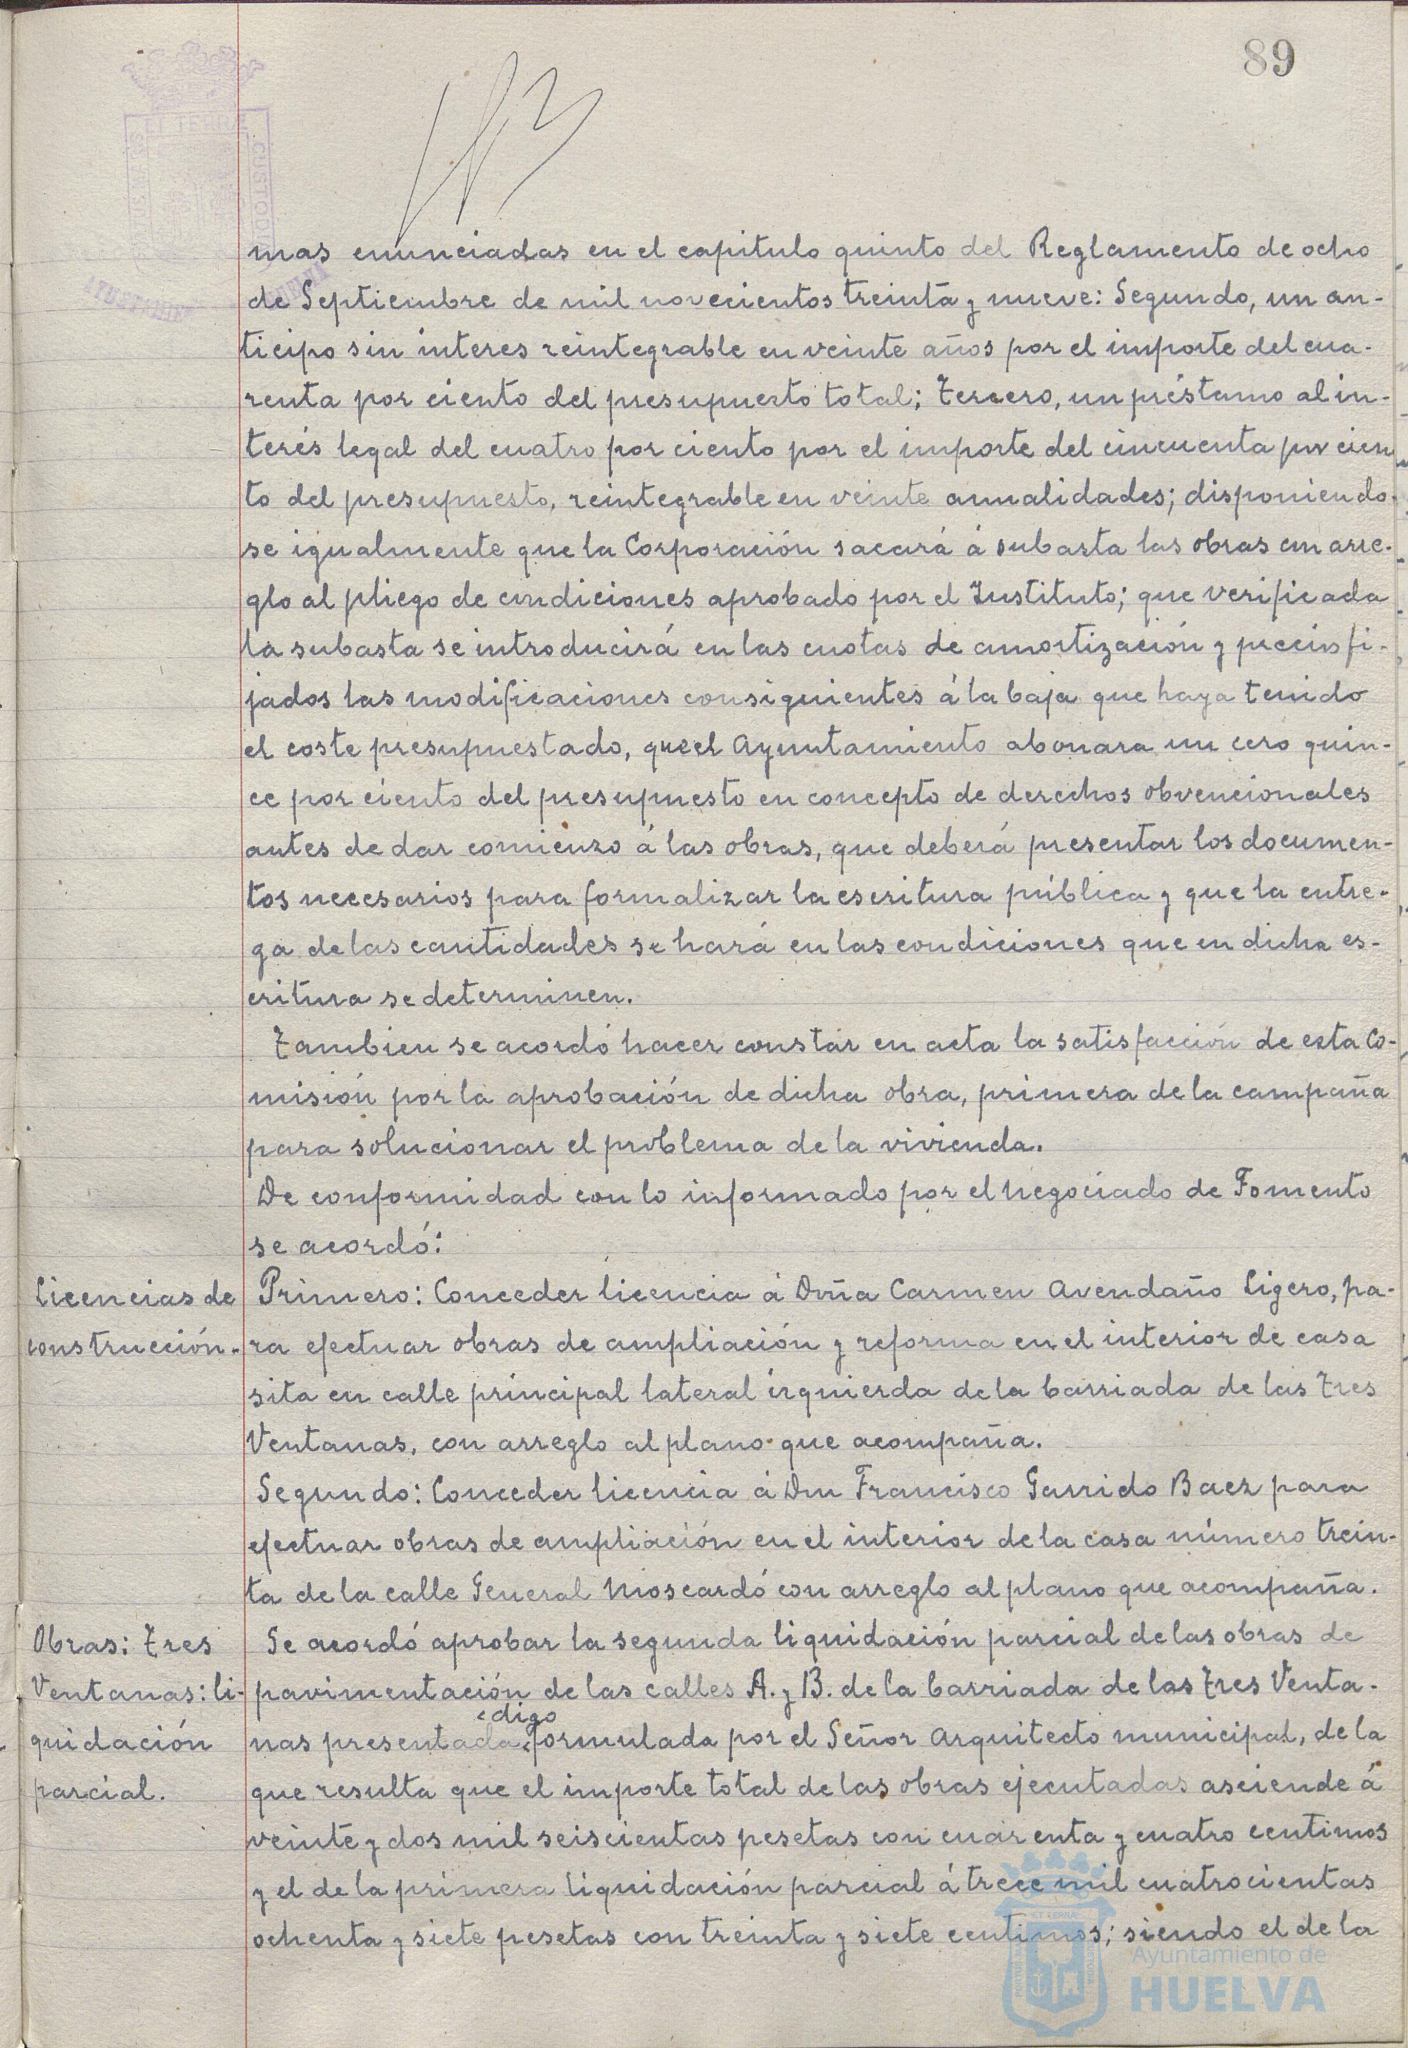 89
mas enunciadas en el capitulo quinto del Reglamento de ocho
de Septiembre de mil novecientos treinta y nueve: Segundo, un an-
ticipo sin interes reintegrable en veinte años por el importe del cua-
renta por ciento del presupuesto total; Tercero, un préstamo al in-
terés legal del cuatro por ciento por el importe del cincuenta por cien
to del presupuesto, reintegrable en veinte anualidades; disponiendo-
se igualmente que la Corporación sacará á subasta las obras con arre-
glo al pliego de condiciones aprobado por el Instituto; que verificada
la subasta se introducirá en las cuotas de amortización y precios fi-
jados las modificaciones consiguientes á la baja que haya tenido
el coste presupuestado, que el Ayuntamiento abonara un cero quin-
ce por ciento del presupuesto en concepto de derechos obvencionales
antes de dar comienzo á las obras, que deberá presentar los documen-
tos necesarios para formalizar la escritura pública y que la entre-
ga de las cantidades se hará en las condiciones que en dicha es-
critura se determinen.
Tambien se acordó hacer constar en acta la satisfacción de esta Co-
misión por la aprobación de dicha obra, primera de la campaña
para solucionar el problema de la vivienda.
De conformidad con lo informado por el Negociado de Fomento
se acordó:
Licencias de
construcción.
Primero: Conceder licencia á Dña Carmen Avendaño Ligero, pa-
ra efectuar obras de ampliación y reforma en el interior de casa
sita en calle principal lateral izquierda de la barriada de las Tres
Ventanas, con arreglo al plano que acompaña.
Segundo: Conceder licencia á Don Francisco Garrido Baez para
efectuar obras de ampliación en el interior de la casa número trein-
ta de la calle General Moscardó con arreglo al plano que acompaña.
Obras: Tres
Ventanas: li-
quidación
parcial.
Se acordó aprobar la segunda liquidación parcial de las obras de
pavimentación de las calles A. y B. de la barriada de las Tres Venta-
digo
nas presentada, formulada por el Señor Arquitecto municipal, de la
que resulta que el importe total de las obras ejecutadas asciende á
veinte y dos mil seiscientas pesetas con cuarenta y cuatro centimos
y el de la primera liquidación parcial á trece mil cuatrocientas
ochenta y siete pesetas con treinta y siete centimos; siendo el de la
Ayuntamiento de
HUELVA